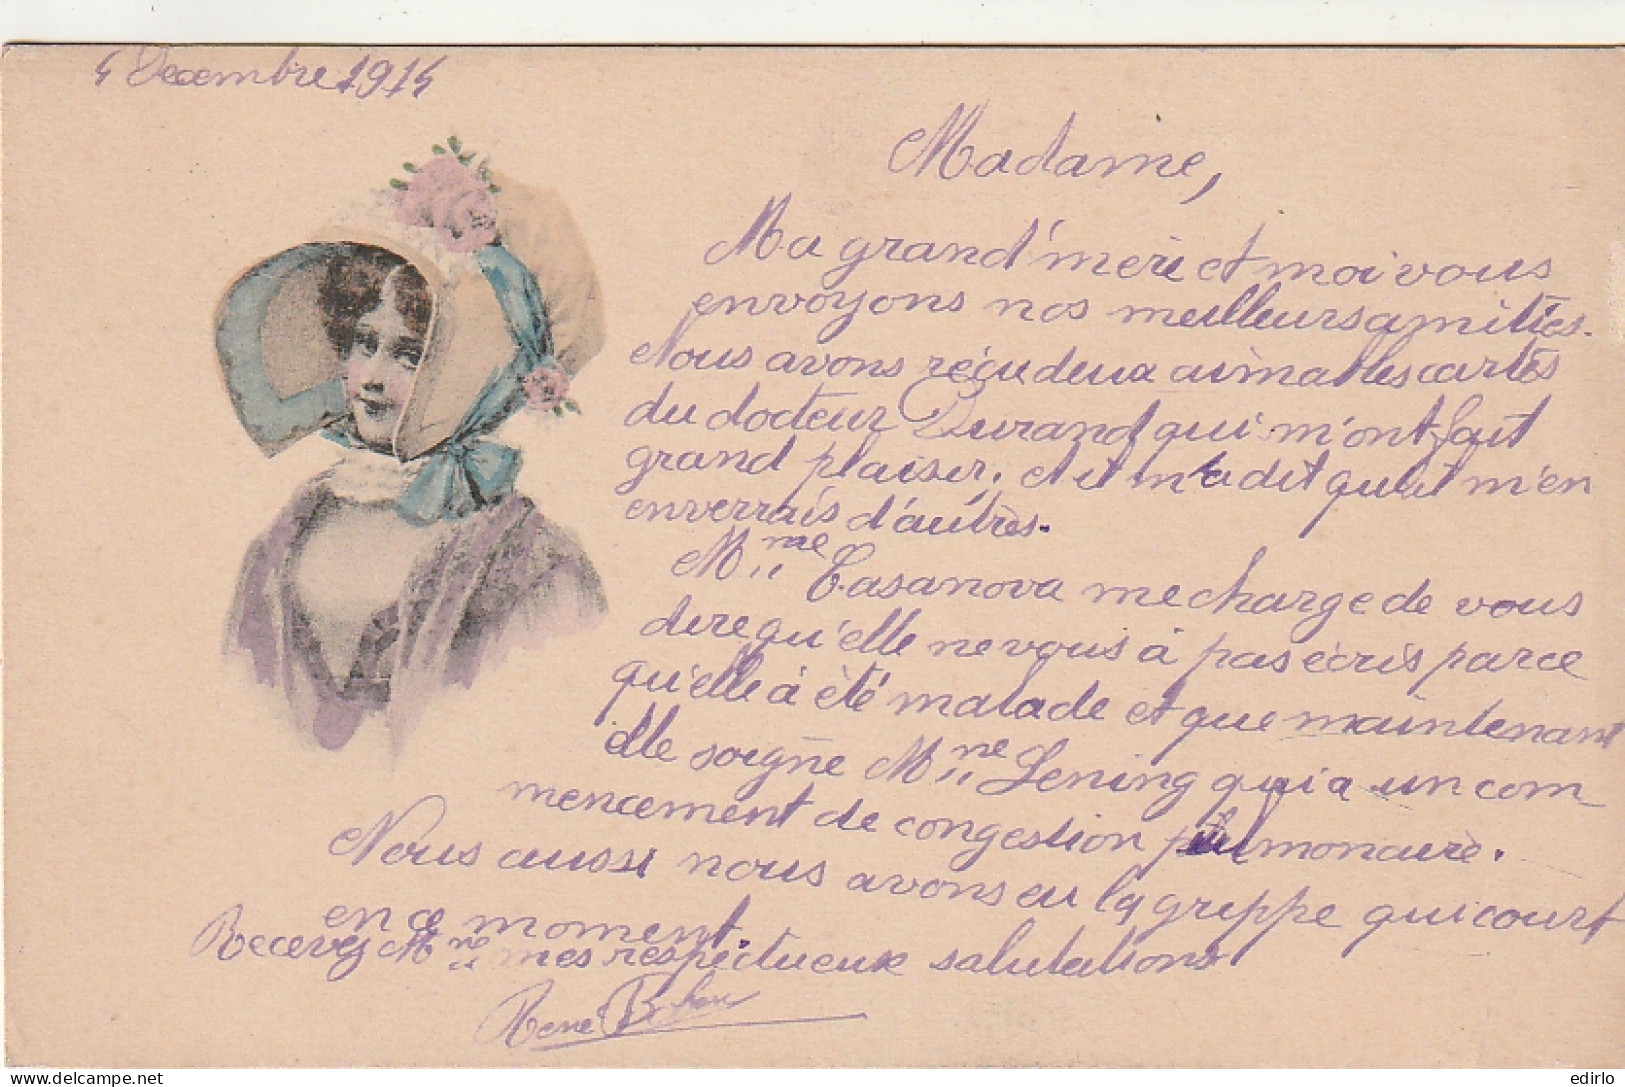 4 Decembre 1914
Madame,
Ma grand'mère et moi vous
envoyons nos meilleurs amitiés.
Nous avons réçu deux aimables cartes
du docteur Durand qui m'ont fait
grand plaisir, et il m'a dit qu'il m'en
enverrais d'autres.
Mme Casanova me charge de vous
dire qu'elle ne vous à pas écris parce
qu'elle à été malade et que maintenant
elle soigne Mme Lening qui a un com
mencement de congestion pulmonaire.
Nous aussi nous avons eu la grippe qui court
en ce moment.
Recevez Mme mes respectueux salutations
René
edirlo
delcampe.net